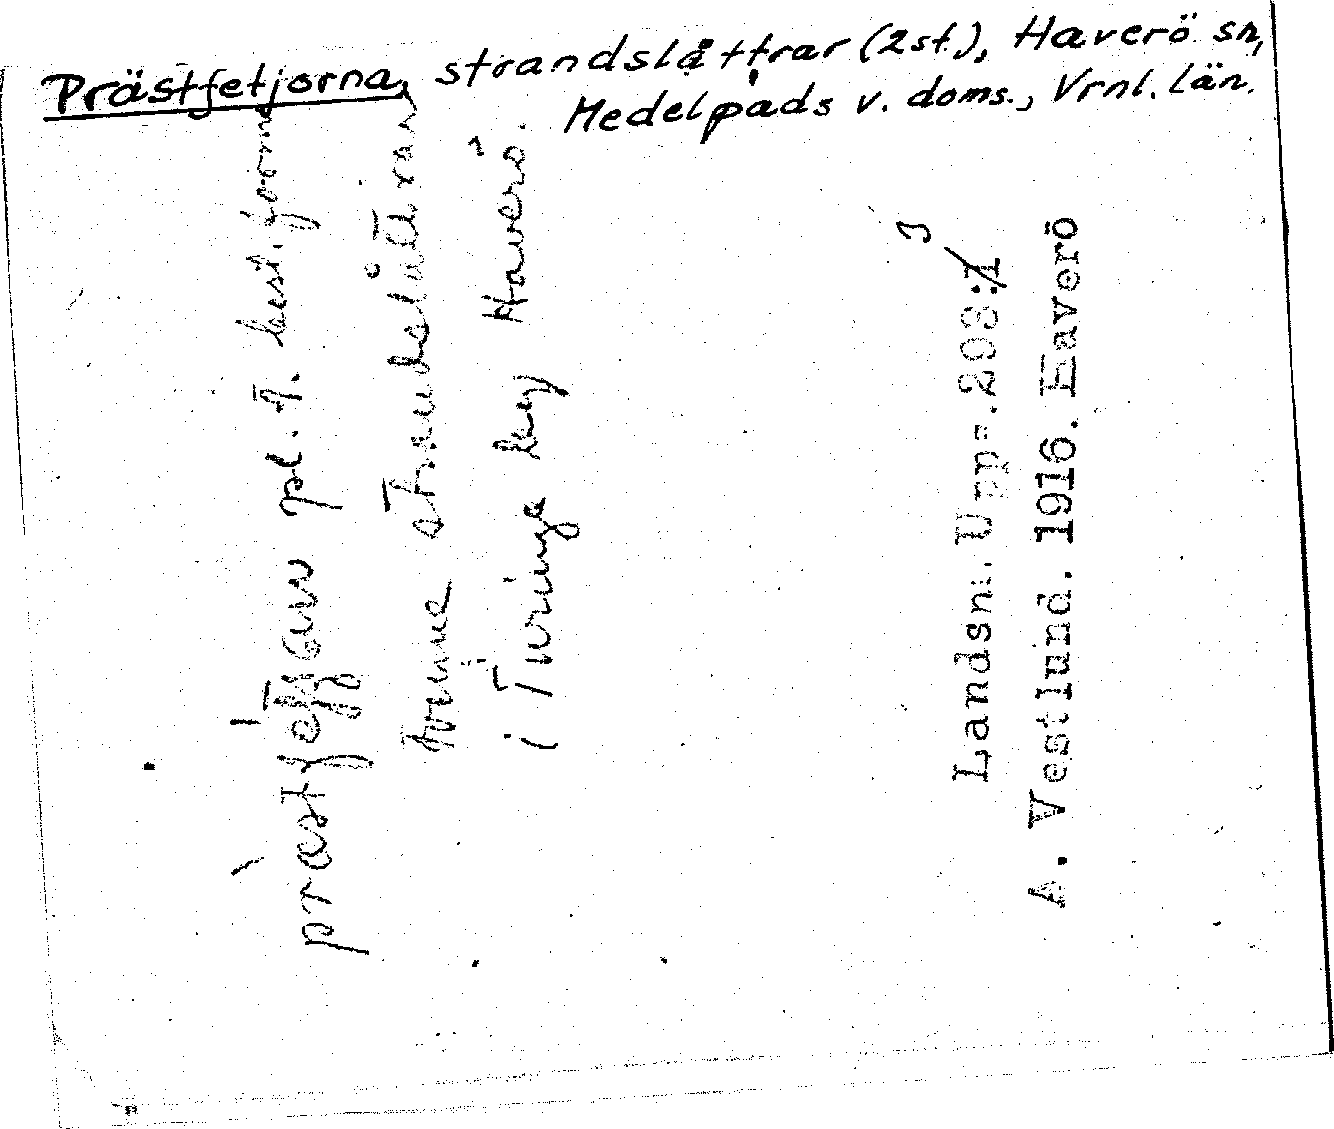 Prästfetjorna, strandslåttrar (2 st.), Haverö sn,
Medelpads v. doms., Vrnl. län.
pl. f. best. form
tvenne strandslåttrar
i Turinge by Haverö.
Landsm. Upps. 298:1 3
A. Vestlund. 1916. Haverö